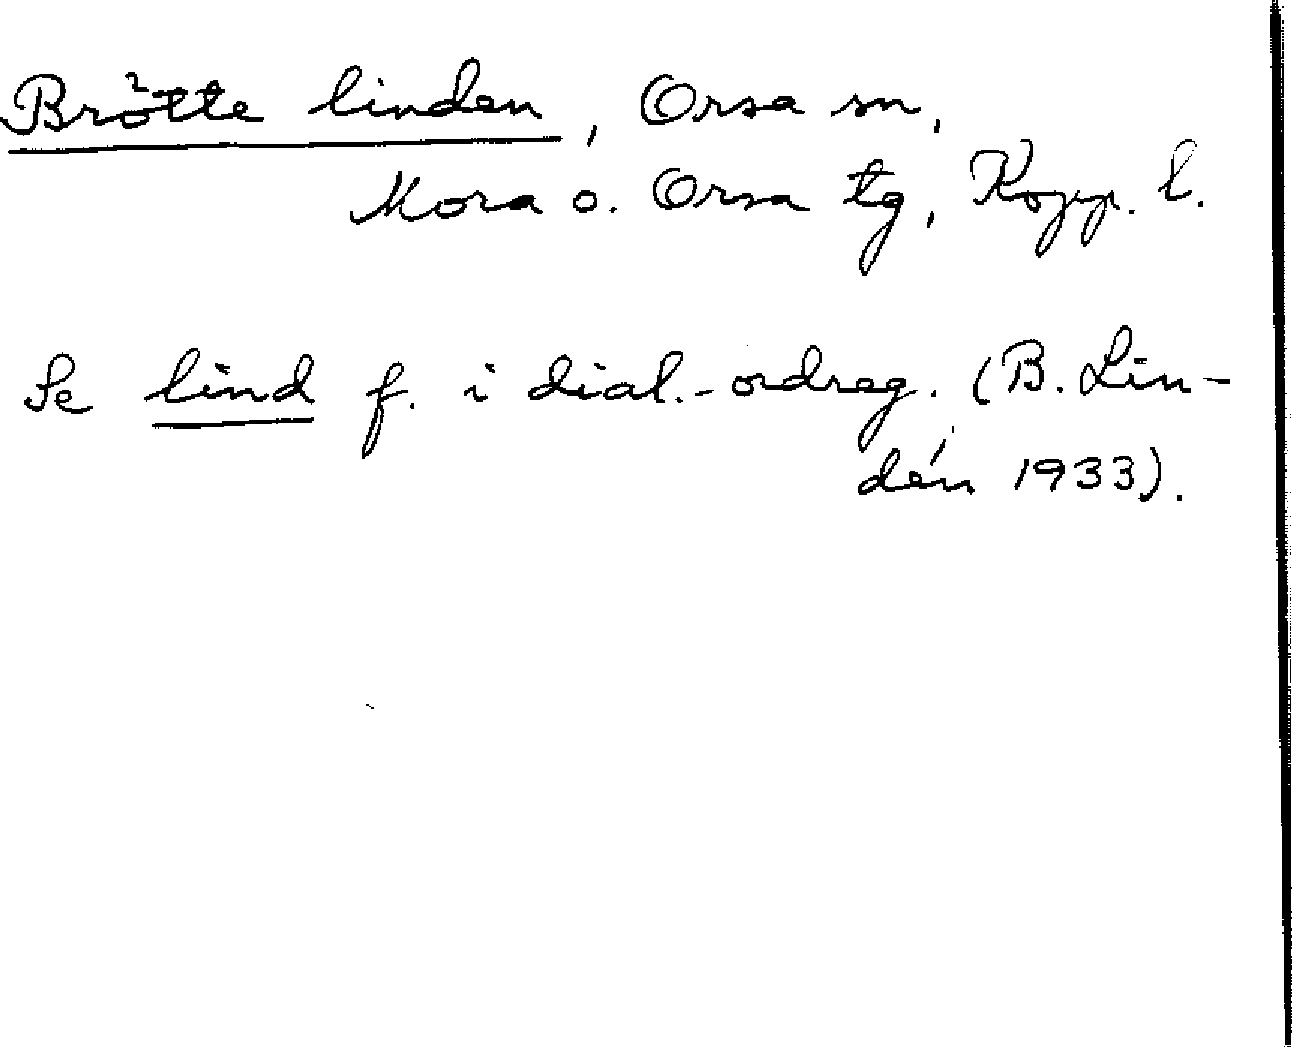 Brötte linden, Orsa sn,
Mora o. Orsa tg, Kopp. l.
Se lind f. i dial.-ordreg. (B. Lin-
dén 1933).